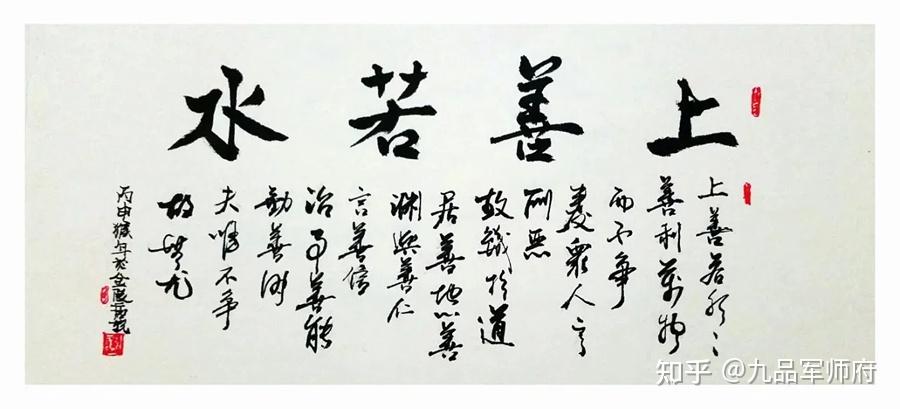 上善若水
上善若水〻
善利萬物
而不争
處眾人之
所惡
故幾於道
居善地心善
淵與善仁
言善信
治事善能
動善時
夫唯不争
故無尤
丙申猴年於金陵
知乎 @九品军师府